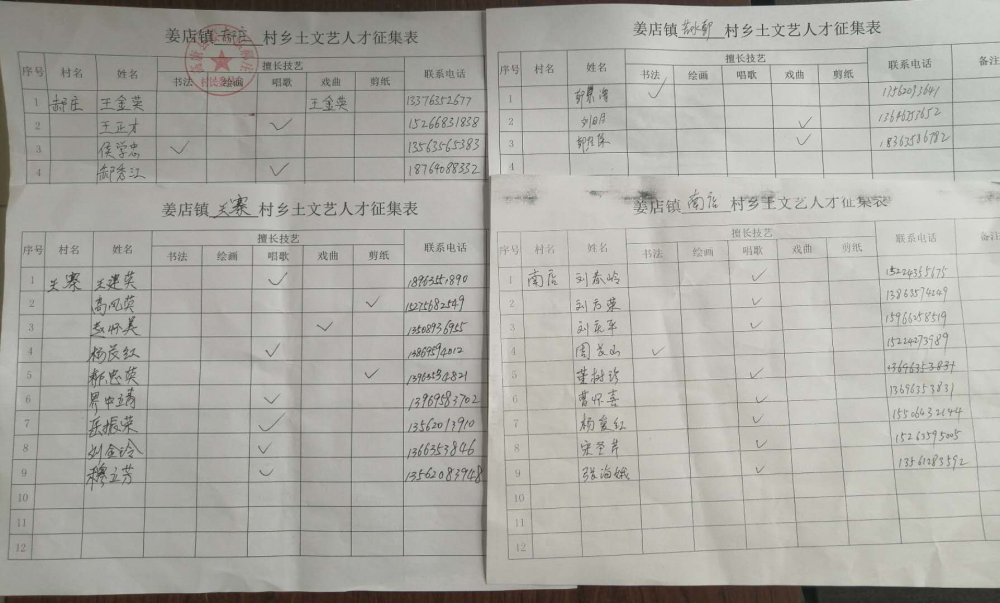 姜店镇 郝庄 村乡土文艺人才征集表
序号 村名 姓名 擅长技艺 联系电话
书法 绘画 唱歌 戏曲 剪纸
1 郝庄 王金英 王金英 13376352677
2 王正才 ✓ 15266831838
3 侯学忠 ✓ 13563565383
4 郝秀江 ✓ 18764088332
姜店镇 村乡土文艺人才征集表
序号 村名 姓名 擅长技艺 联系电话 备注
书法 绘画 唱歌 戏曲 剪纸
1 ✓ 13562093641
2 刘日月 ✓ 13646353652
3 ✓ 18363586782
4
姜店镇 王寨 村乡土文艺人才征集表
序号 村名 姓名 擅长技艺 联系电话
书法 绘画 唱歌 戏曲 剪纸
1 王寨 王建英 ✓ 18963551890
2 高凤英 ✓ 15275682549
3 赵怀美 ✓ 13508936955
4 杨长红 ✓ 13869594012
5 郝忠英 ✓ 13963534821
6 ✓ 13969583702
7 岳振荣 ✓ 13562013910
8 刘金玲 ✓ 1366353846
9 穆立芳 ✓ 13562083948
10
11
12
姜店镇 南店 村乡土文艺人才征集表
序号 村名 姓名 擅长技艺 联系电话 备注
书法 绘画 唱歌 戏曲 剪纸
1 南店 刘春岭 ✓ 15224355675
2 刘方荣 ✓ 13863574249
3 刘玉平 ✓ 15966258519
4 周长山 ✓ 15224273989
5 董树珍 ✓ 13696353831
6 曹怀喜 ✓ 13696353831
7 杨爱红 ✓ 15506432144
8 宋圣芹 ✓ 15263595005
9 张海娥 ✓ 13561283592
10
11
12